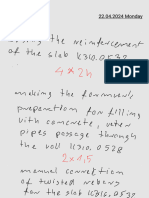 22.04.2024 Monday
the reinforcement
of the slab K310.0532
4 * 2h
making the formwork
preparation for filling
with concrete, water
pipes passage through
the wall K310.0528
2 x 1,5
manual connection
of twisted
for the slab